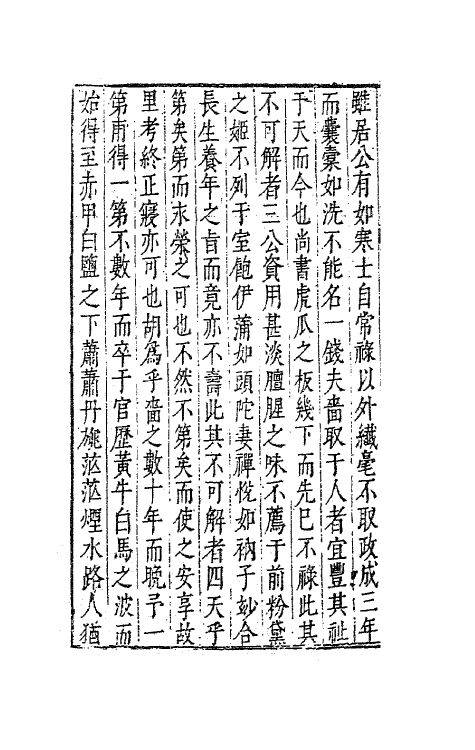 雖居公有如寒士自常祿以外纖毫不取政成三年
而囊橐如洗不能名一錢夫嗇取于人者宜豐其祉
于天而今也尚書虎瓜之板幾下而先已不祿此其
不可解者三公資用甚淡膻腥之味不薦于前粉黛
之姬不列于室飽伊蒲如頭陀妻禪悅如衲子妙合
長生養年之旨而竟亦不壽此其不可解者四天乎
第矣第而求榮之可也不然不第矣而使之安享故
里考終正寢亦可也胡爲乎嗇之數十年而晩予一
第甫得一第不數年而卒于官歷黃牛白馬之波而
始得至赤甲白鹽之下蕭蕭丹旐茫茫煙水路人猶